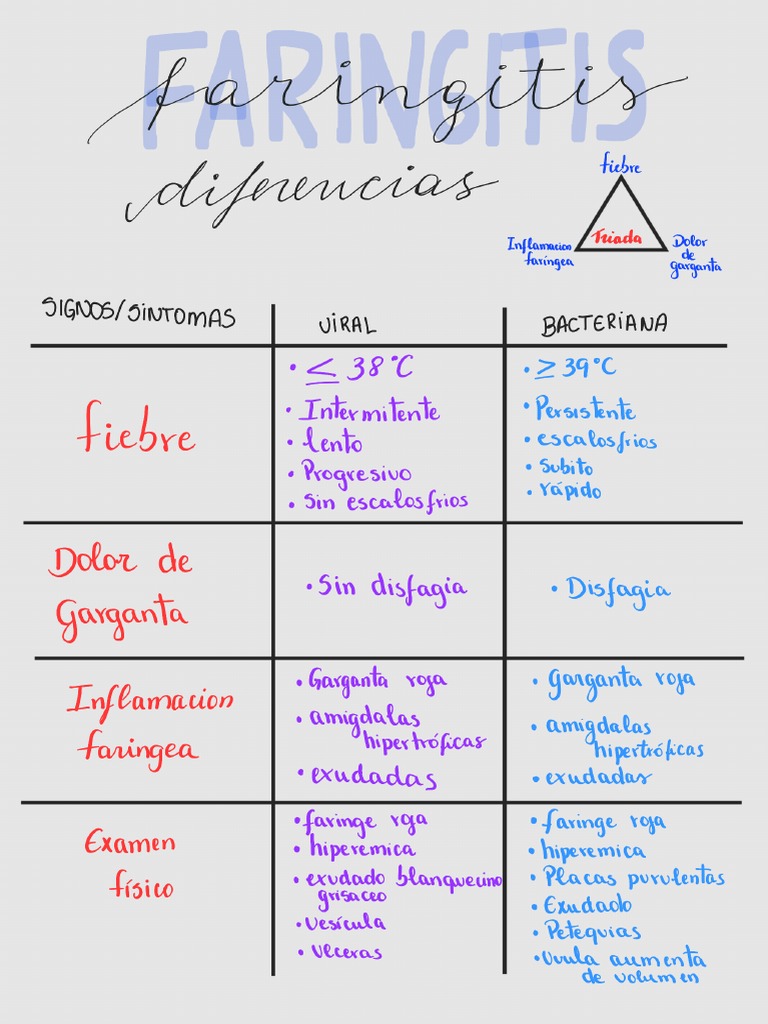 FARINGITIS
faringitis
diferencias
fiebre
Triada
Inflamacion
faríngea
Dolor
de
garganta
SIGNOS/SINTOMAS
VIRAL
BACTERIANA
fiebre
• ≤ 38°C
• Intermitente
• lento
• Progresivo
• Sin escalosfrios
• ≥ 39°C
• Persistente
• escalosfrios
• Subito
• rápido
Dolor de
Garganta
• Sin disfagia
• Disfagia
Inflamacion
faringea
• Garganta roja
• amigdalas
hipertróficas
• exudadas
• garganta roja
• amigdalas
hipertróficas
• exudadas
Examen
físico
• faringe roja
• hiperemica
• exudado blanquecino
grisaceo
• Vesícula
• Ulceras
• faringe roja
• hiperemica
• Placas purulentas
• Exudado
• Petequias
• Uvula aumenta
de volumen